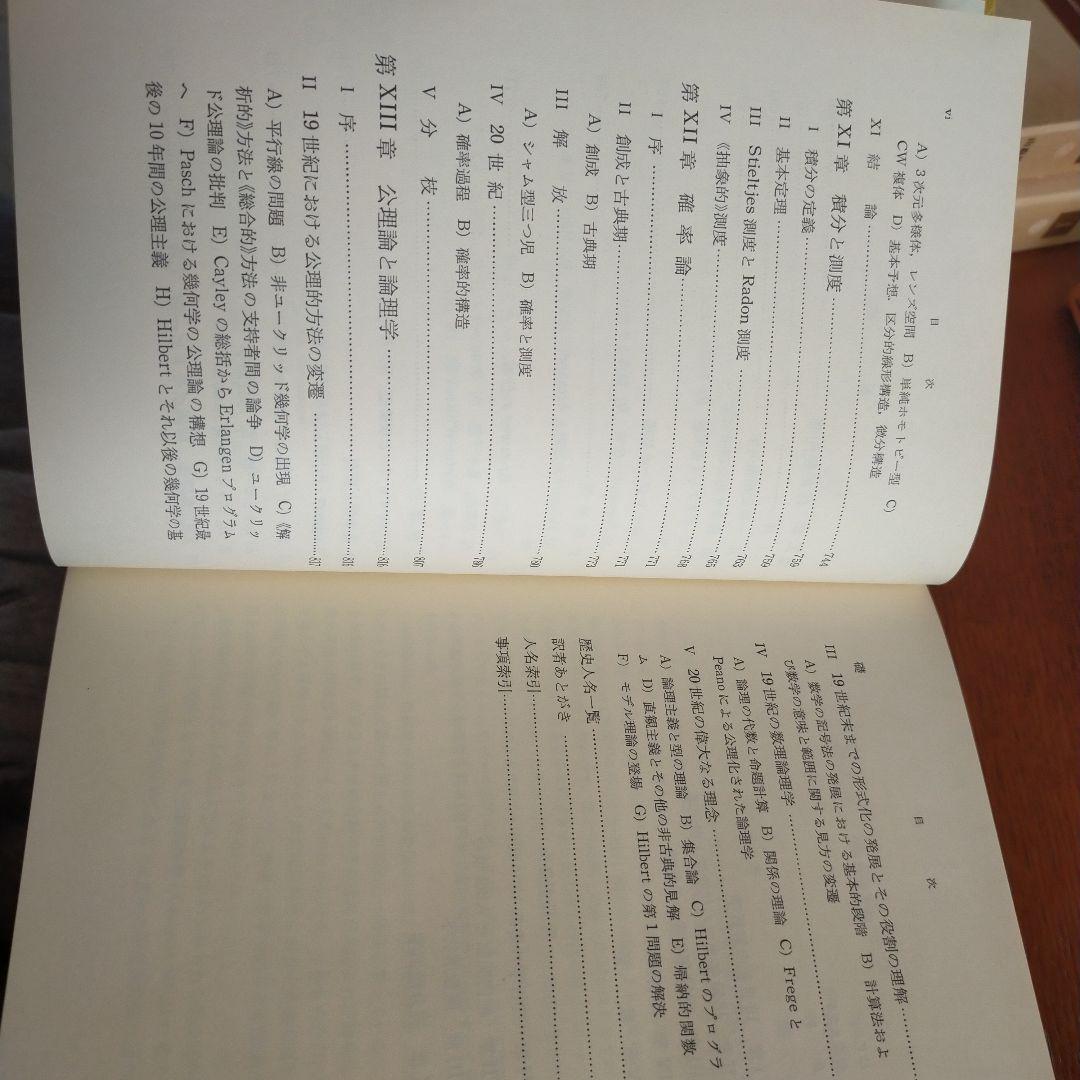 vi
目　次
A) 3次元多様体，レンズ空間　B) 単純ホモトピー型　C)
CW複体　D) 基本予想，区分的線形構造，微分構造
XI　結　論……744
第XI章　積分と測度
I　積分の定義……759
II　基本定理……759
III　Stieltjes測度とRadon測度……763
IV　《抽象的》測度……765
第XII章　確率論……768
I　序……771
II　創成と古典期……771
A) 創成　B) 古典期……773
III　解　放
A) シャム型三つ児　B) 確率と測度
IV　20世紀
A) 確率過程　B) 確率的構造
V　分　枝……807
第XIII章　公理論と論理学……816
I　序……816
II　19世紀における公理的方法の変遷……817
A) 平行線の問題　B) 非ユークリッド幾何学の出現　C)《解
析的》方法と《総合的》方法の支持者間の論争　D) ユークリッ
ド公理論の批判　E) Cayleyの総括からErlangenプログラム
へ　F) Paschにおける幾何学の公理論の構想　G) 19世紀最
後の10年間の公理主義　H) Hilbertとそれ以後の幾何学の基
目　次
礎
III　19世紀末までの形式化の発展とその役割の理解……
A) 数学の記号法の発展における基本的段階　B) 計算法およ
び数学の意味と範囲に関する見方の変遷
IV　19世紀の数理論理学……
A) 論理の代数と命題計算　B) 関係の理論　C) Fregeと
Peanoによる公理化された論理学
V　20世紀の偉大なる理念……
A) 論理主義と型の理論　B) 集合論　C) Hilbertのプログラ
ム　D) 直観主義とその他の非古典的見解　E) 帰納的関数
F) モデル理論の登場　G) Hilbertの第1問題の解決
歴史人名一覧……
訳者あとがき……
人名索引……
事項索引……